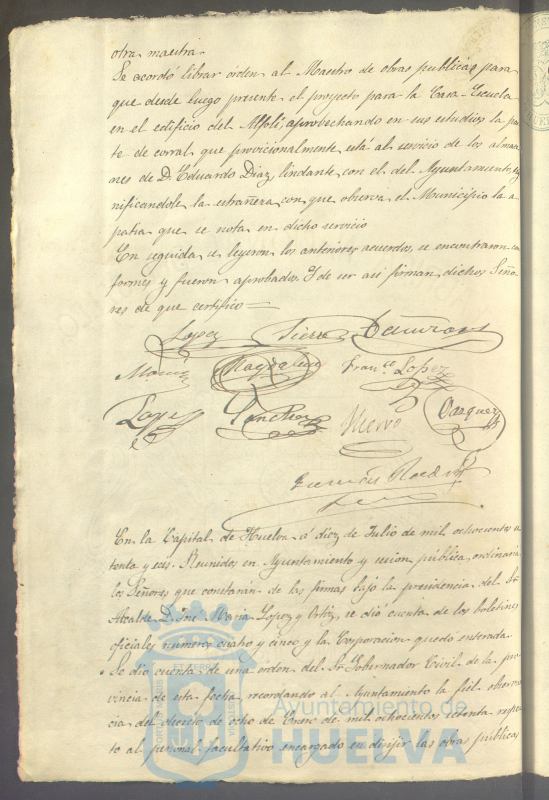 otra maestra.
Se acordó librar orden al Maestro de obras publicas para
que desde luego presente el proyecto para la Casa-Escuela
en el edificio del Alfolí, aprovechando en sus estudios la par
te de corral que provicionalmente está al servicio de los alma
nes de D. Eduardo Diaz, lindante con el del Ayuntamiento, sig
nificandole la estrañeza con que observa el Municipio la a-
patia que se nota en dicho servicio
En seguida se leyeron los anteriores acuerdos, se encontraron con
formes y fueron aprobados. Y de ser asi firman dichos Seño-
res de que certifico=
Lopez
Magdalena
Fran.co Lopez
Lopez Sanchez Vazquez
En la Capital de Huelva á diez de Julio de mil ochocientos se
tenta y seis. Reunidos en Ayuntamiento y sesion pública ordinaria
los Señores que constarán de las firmas bajo la presidencia del Sr.
Alcalde D. José Maria Lopez y Ortiz, se dió cuenta de los boletines
oficiales números cuatro y cinco y la Corporacion quedó enterada.
Se dio cuenta de una orden del Sr. Gobernador Civil de la pro-
vincia de esta fecha recordando al Ayuntamiento la fiel observan
cia del decreto de ocho de Enero de mil ochocientos setenta respec
to al personal facultativo encargado en dirijir las obras públicas
Ayuntamiento de
HUELVA